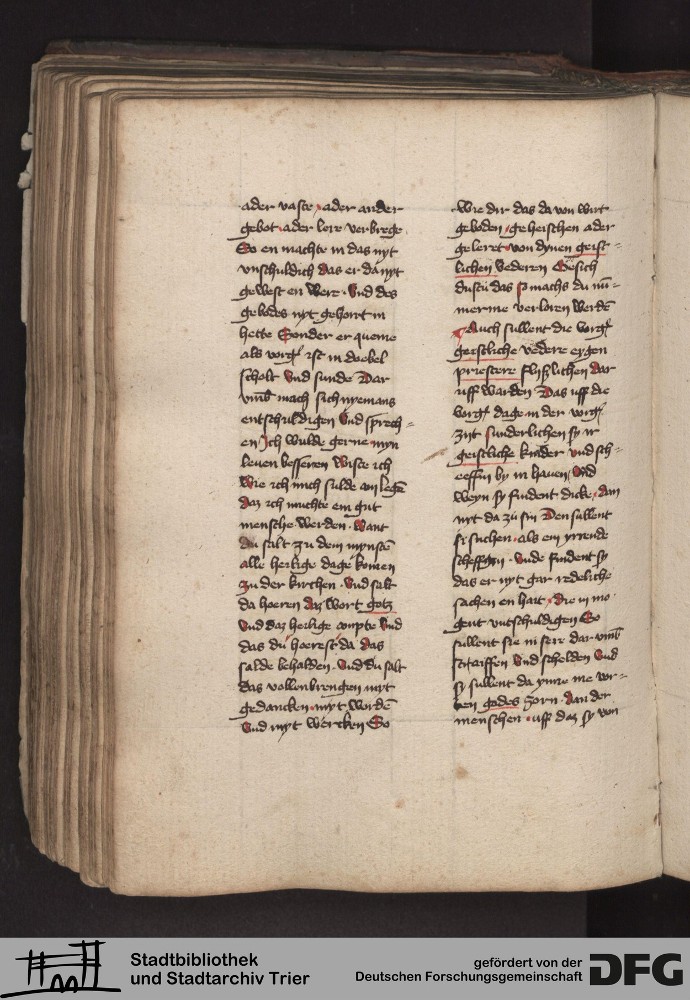 ader vaste ader ander
gebot ader lere verbrege
So en machte in das nyt
vnschuldich das er da nyt
gewest en Were Vnd des
gebodes nyt gehort in
hette Sonder er queme
als vorg̃ ist in dobel
scholt Vnd sunde Dar
vmb mach sich nyemans
entschuldigen Vnd sprech=
en Jch wulde gerne myn
leuen besseren Wiste ich
Wie ich mich sulde an legē
daz ich muchte ein gut
mensche werden Want
du salt zu dem mynstē
alle heilige dage komen
zu der kirchen Vnd salt
da hoeren daz wort gotz
Vnd daz heilige Vnd
das du hoerest da das
salde behalden Vnd du salt
das vollenbrengen myt
gedancken myt wordē
Vnd myt wercken So
Wie dir das da von wirt
geboden geheischen ader
geleret von dynen geist=
lichen vederen Gesich
dustu das so machs du nü=
merme verloren werdē
Auch sullent die vorg̃
geistliche vedere eygen
priestere flyßlichen dar
uff warden Das uff die
vorg̃ dage in der vorg̃
zijt sunderlichen sy ir
geistliche kinder vnd sch=
eeffin by in hauen Vnd
weyn sy findent dicke dan
nyt da zü sin Den sullent
si suchen als ein yrrende
scheffgyn Vnde findent sy
das er nyt gar redeliche
sachen en hait die in mo
gent vntschuldigen So
sullent sie in sere dar vmb
straiffen Vnd schelden Vnd
sy sullent da ynne me vor=
ten godes zorn dan der
menschen uff daz sy von
Stadtbibliothek
und Stadtarchiv Trier
gefördert von der
Deutschen Forschungsgemeinschaft
DFG